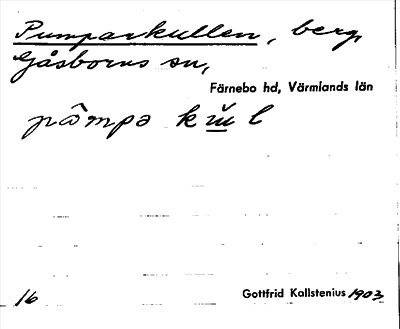 Pumparkullen, berg,
Gåsborns sn,
Färnebo hd, Värmlands län
pâmpə kŭl
16
Gottfrid Kallstenius 1903